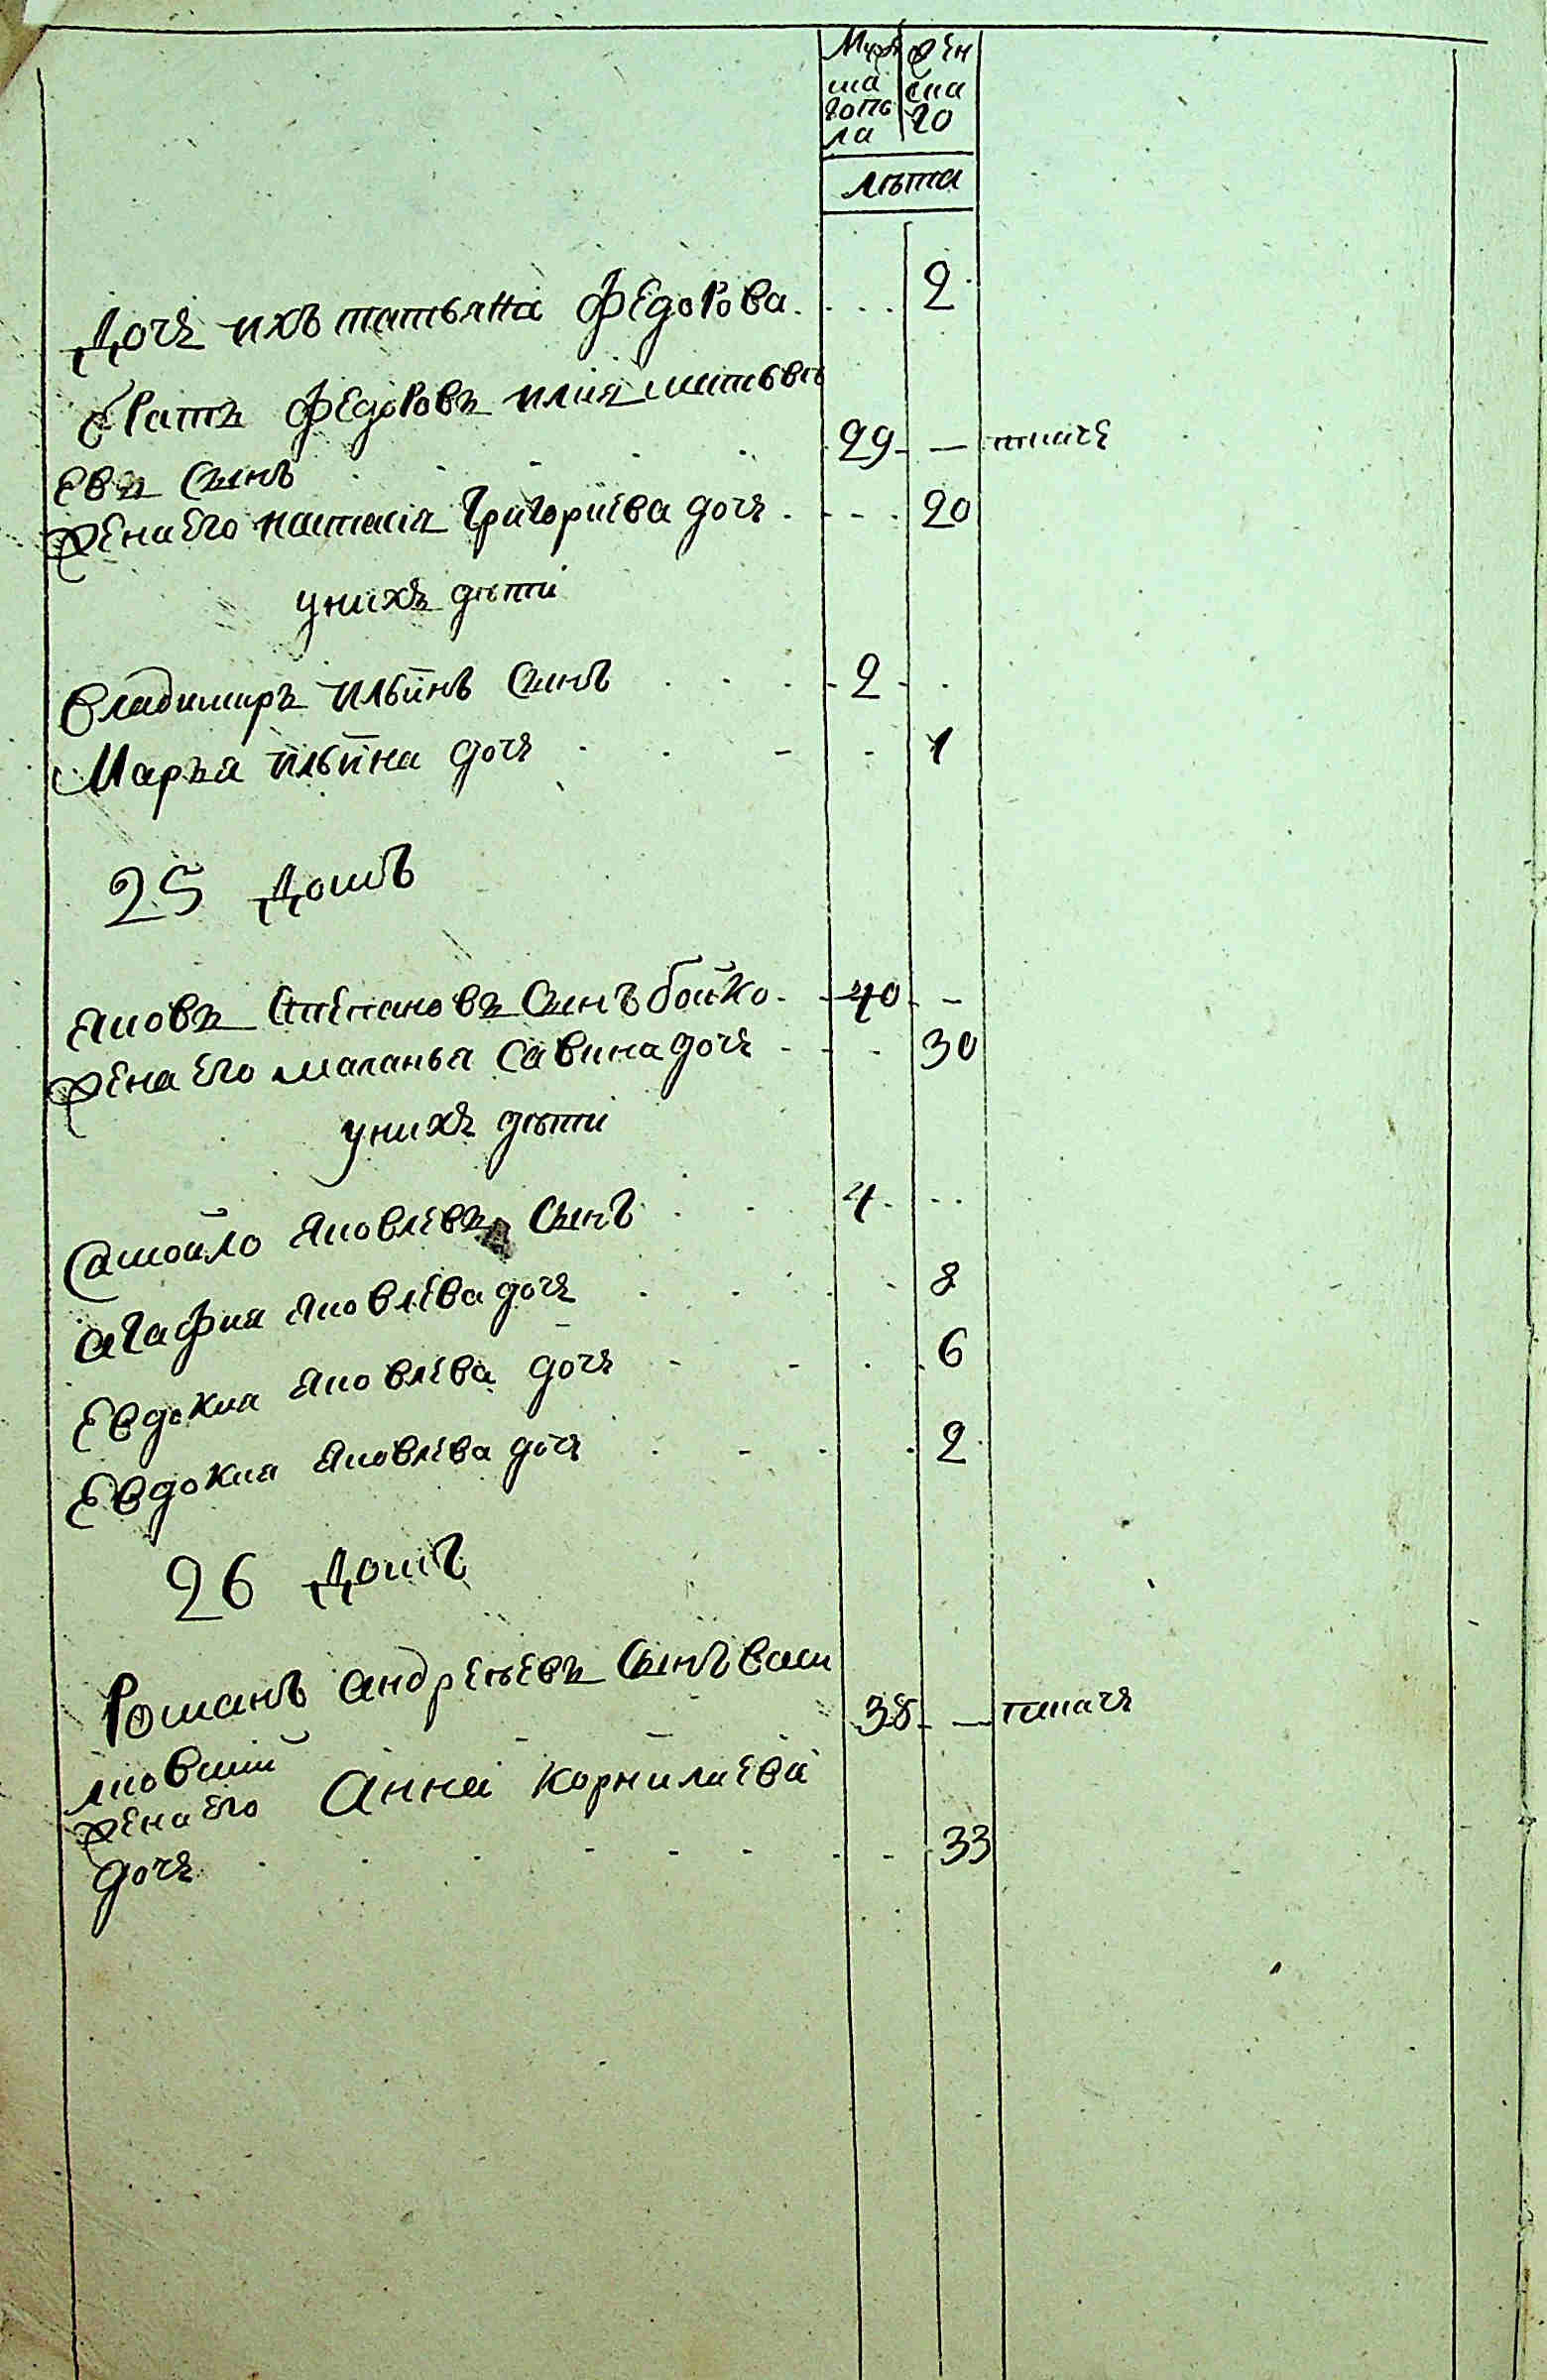 Мужеска го пола Женска го
лѣта
Дочь ихъ татьяна Федорова. . . . 2
братъ Федоровъ илия матвѣ
евъ сынъ . . . . . 29 — ткачь
жена его настасія Григориева дочь . . . . 20
у нихъ дѣти
Владимиръ ильинъ сынъ . . . 2 . .
Марья ильина дочь . . - - 1
25 Домъ
яковъ степановъ сынъ бойко . . 40 . –
жена его маланья савина дочь . . . 30
у нихъ дѣти
Самойло яковлевъ сынъ . . 4 . . .
агафия яковлева дочь . . . . 8
Евдокия яковлева дочь . . . . 6
Евдокия яковлева дочь . . . . 2
26 Домъ
Романъ андреѣевъ сынъ васи
лковский 38 — ткачь
жена его анна корнилиева
дочь . . . . . . . . 33